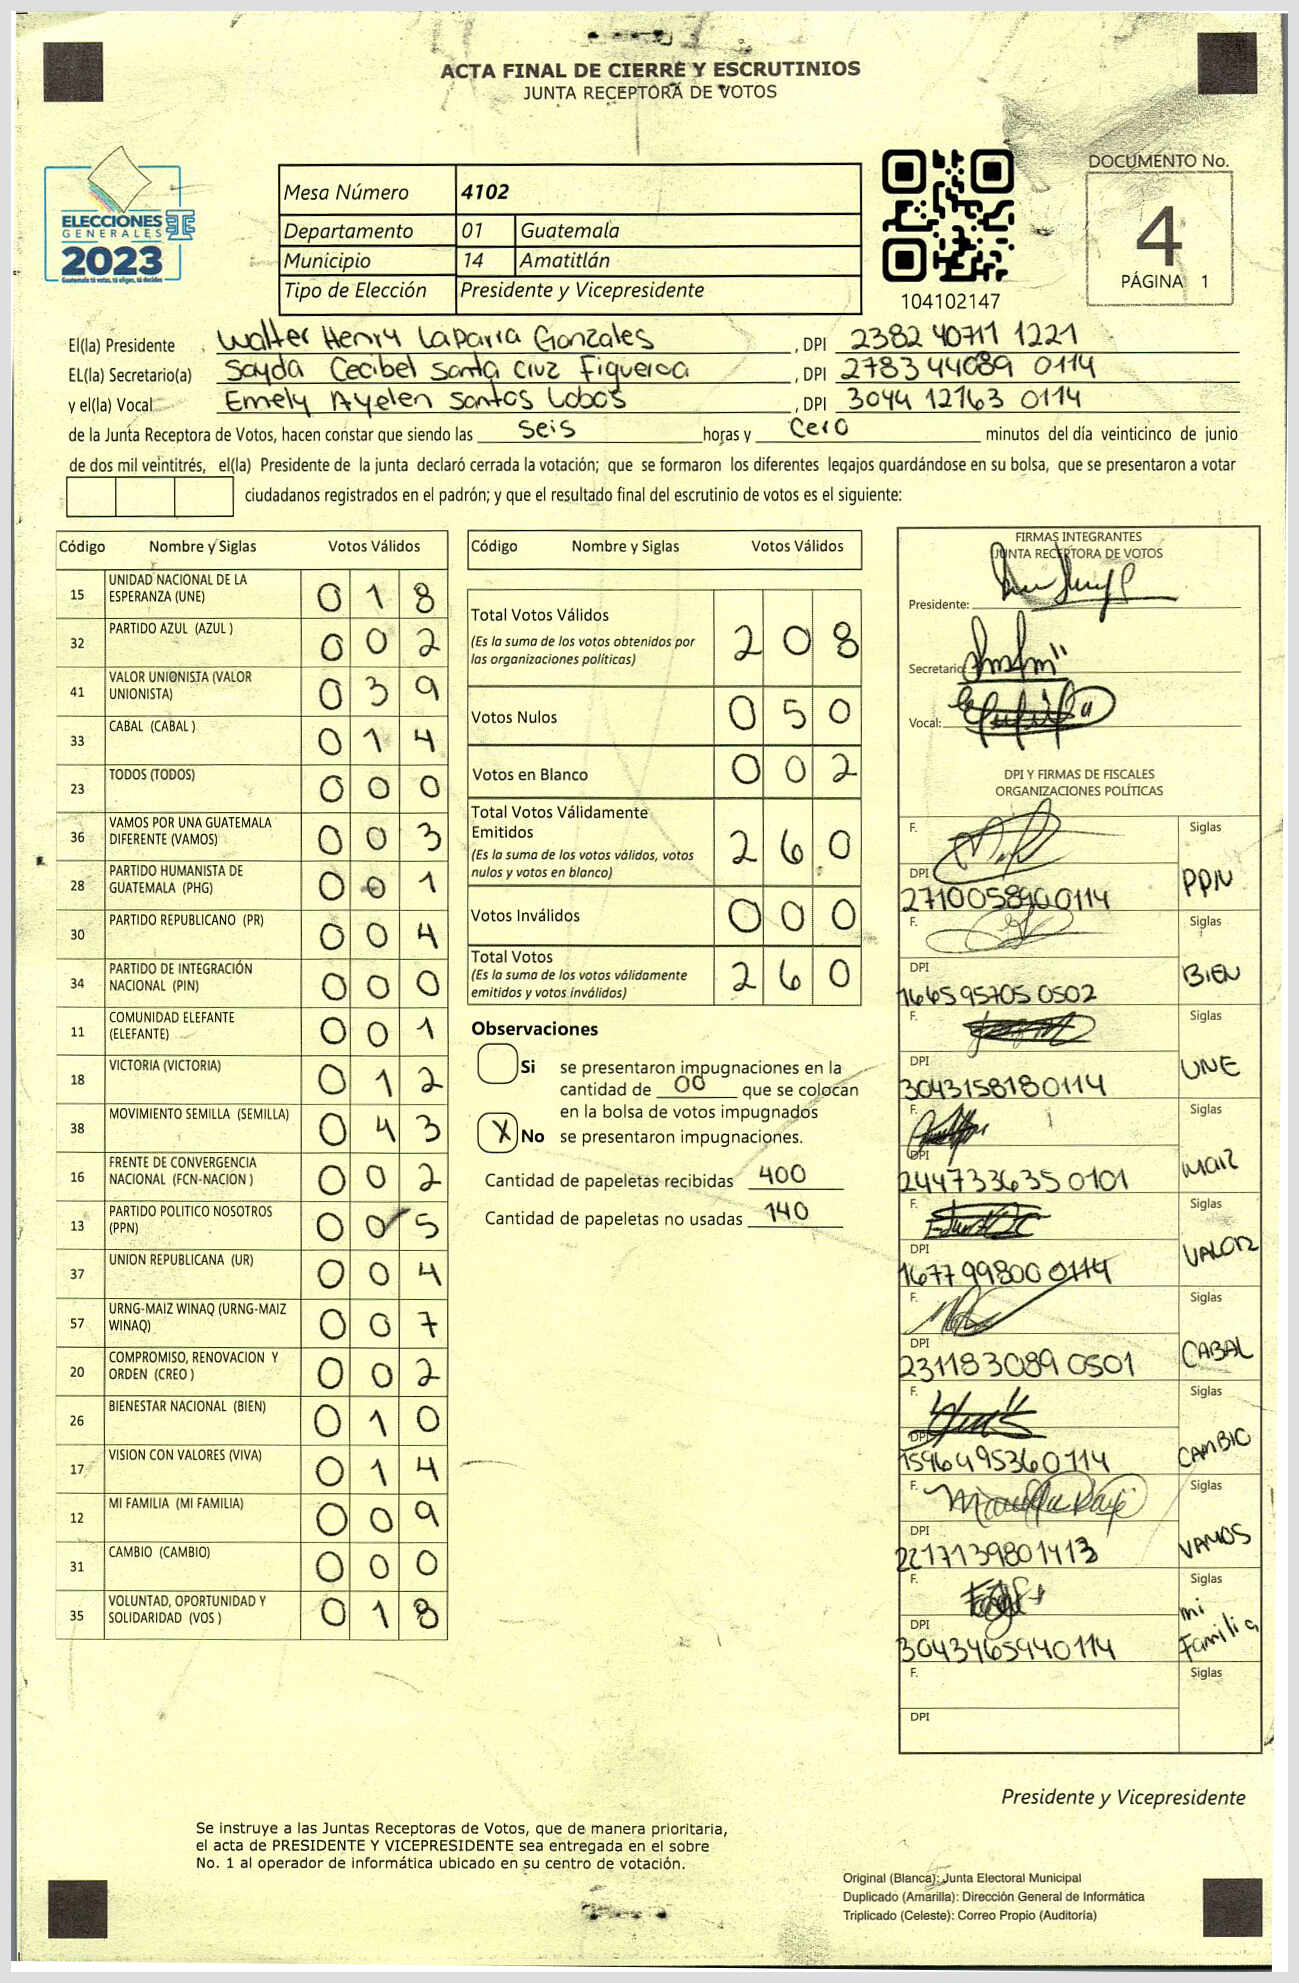 ACTA FINAL DE CIERRE Y ESCRUTINIOS
JUNTA RECEPTORA DE VOTOS
ELECCIONES
GENERALES
2023
Guatemala tú votas, tú eliges, tú decides
Mesa Número 4102
Departamento 01 Guatemala
Municipio 14 Amatitlán
Tipo de Elección Presidente y Vicepresidente
104102147
DOCUMENTO No.
4
PÁGINA 1
El(la) Presidente Walter Henry Laparra Gonzales, DPI 2382 40711 1221
EL(la) Secretario(a) Sayda Cecibel Santa Cruz Figueroa, DPI 2783 44089 0114
y el(la) Vocal Emely Ayelen Santos Lobos, DPI 3044 12763 0114
de la Junta Receptora de Votos, hacen constar que siendo las seis horas y cero minutos del día veinticinco de junio
de dos mil veintitrés, el(la) Presidente de la junta declaró cerrada la votación; que se formaron los diferentes legajos guardándose en su bolsa, que se presentaron a votar
ciudadanos registrados en el padrón; y que el resultado final del escrutinio de votos es el siguiente:
Código Nombre y Siglas Votos Válidos
15 UNIDAD NACIONAL DE LA ESPERANZA (UNE) 0 1 8
32 PARTIDO AZUL (AZUL ) 0 0 2
41 VALOR UNIONISTA (VALOR UNIONISTA) 0 3 9
33 CABAL (CABAL ) 0 1 4
23 TODOS (TODOS) 0 0 0
36 VAMOS POR UNA GUATEMALA DIFERENTE (VAMOS) 0 0 3
28 PARTIDO HUMANISTA DE GUATEMALA (PHG) 0 0 1
30 PARTIDO REPUBLICANO (PR) 0 0 4
34 PARTIDO DE INTEGRACIÓN NACIONAL (PIN) 0 0 0
11 COMUNIDAD ELEFANTE (ELEFANTE) 0 0 1
18 VICTORIA (VICTORIA) 0 1 2
38 MOVIMIENTO SEMILLA (SEMILLA) 0 4 3
16 FRENTE DE CONVERGENCIA NACIONAL (FCN-NACION ) 0 0 2
13 PARTIDO POLITICO NOSOTROS (PPN) 0 0 5
37 UNION REPUBLICANA (UR) 0 0 4
57 URNG-MAIZ WINAQ (URNG-MAIZ WINAQ) 0 0 7
20 COMPROMISO, RENOVACION Y ORDEN (CREO ) 0 0 2
26 BIENESTAR NACIONAL (BIEN) 0 1 0
17 VISION CON VALORES (VIVA) 0 1 4
12 MI FAMILIA (MI FAMILIA) 0 0 9
31 CAMBIO (CAMBIO) 0 0 0
35 VOLUNTAD, OPORTUNIDAD Y SOLIDARIDAD (VOS ) 0 1 8
Código Nombre y Siglas Votos Válidos
Total Votos Válidos 2 0 8
(Es la suma de los votos obtenidos por
las organizaciones políticas)
Votos Nulos 0 5 0
Votos en Blanco 0 0 2
Total Votos Válidamente
Emitidos 2 6 0
(Es la suma de los votos válidos, votos
nulos y votos en blanco)
Votos Inválidos 0 0 0
Total Votos 2 6 0
(Es la suma de los votos válidamente
emitidos y votos inválidos)
Observaciones
Si se presentaron impugnaciones en la
cantidad de 00 que se colocan
en la bolsa de votos impugnados
X No se presentaron impugnaciones.
Cantidad de papeletas recibidas 400
Cantidad de papeletas no usadas 140
FIRMAS INTEGRANTES
JUNTA RECEPTORA DE VOTOS
Presidente:
Secretario:
Vocal:
DPI Y FIRMAS DE FISCALES
ORGANIZACIONES POLÍTICAS
F. Siglas
DPI PPN
2710058900114
F. Siglas
DPI BIEN
1665957050502
F. Siglas
DPI UNE
3043158180114
F. Siglas
DPI MAIZ
2447336350101
F. Siglas
DPI VALOR
1677998000114
F. Siglas
DPI CABAL
2311830890501
F. Siglas
DPI CAMBIO
1596495360114
F. Siglas
DPI VAMOS
2217139801413
F. Siglas
DPI mi Familia
3043465940114
F. Siglas
DPI
Presidente y Vicepresidente
Se instruye a las Juntas Receptoras de Votos, que de manera prioritaria,
el acta de PRESIDENTE Y VICEPRESIDENTE sea entregada en el sobre
No. 1 al operador de informática ubicado en su centro de votación.
Original (Blanca): Junta Electoral Municipal
Duplicado (Amarilla): Dirección General de Informática
Triplicado (Celeste): Correo Propio (Auditoría)